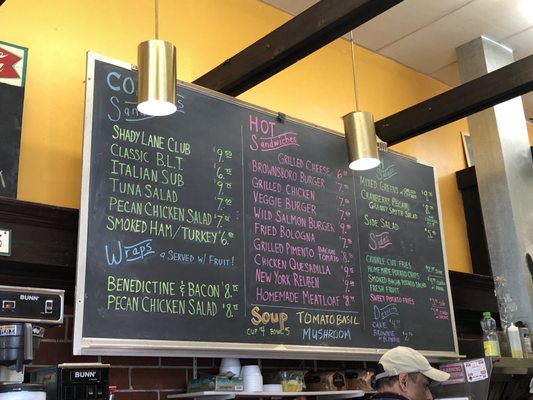 CO
Sandwiches
SHADY LANE CLUB $9.
CLASSIC B.L.T. 6.
ITALIAN SUB 9.
TUNA SALAD 7.
PECAN CHICKEN SALAD 7.
SMOKED HAM/TURKEY $6.
Wraps SERVED W/ FRUIT!
BENEDICTINE & BACON $8.
PECAN CHICKEN SALAD $8.
HOT
Sandwiches
GRILLED CHEESE 6.
BROWNSBORO BURGER 7.
GRILLED CHICKEN 7.
VEGGIE BURGER 7.
WILD SALMON BURGER 9.
FRIED BOLOGNA 7.
GRILLED PIMENTO BACON & TOMATO
CHICKEN QUESADILLA 9.
NEW YORK REUBEN 9.
HOMEMADE MEATLOAF $8.
Soup TOMATO BASIL
CUP 4. BOWL 5. MUSHROOM
Salads
MIXED GREENS $9.
CRANBERRY PECAN,
GRANNY SMITH 8.
SIDE SALAD
Sides
CRINKLE CUT FRIES
HOMEMADE POTATO CHIPS
SMOKED BACON POTATO SALAD
FRESH FRUIT
SWEET POTATO FRIES
CAKE
BROWNIE
BUNN
BUNN